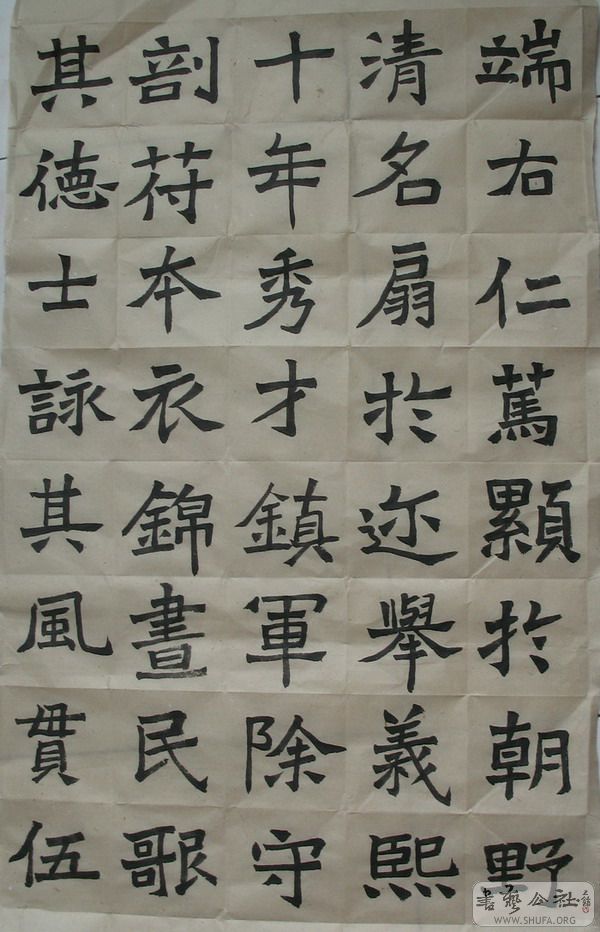 端右仁篤顯於朝野
清名扇於迩舉義熙
十年秀才鎮軍除守
剖苻本衣錦晝民歌
其德士詠其風貫伍
書藝公社
WWW.SHUFA.ORG